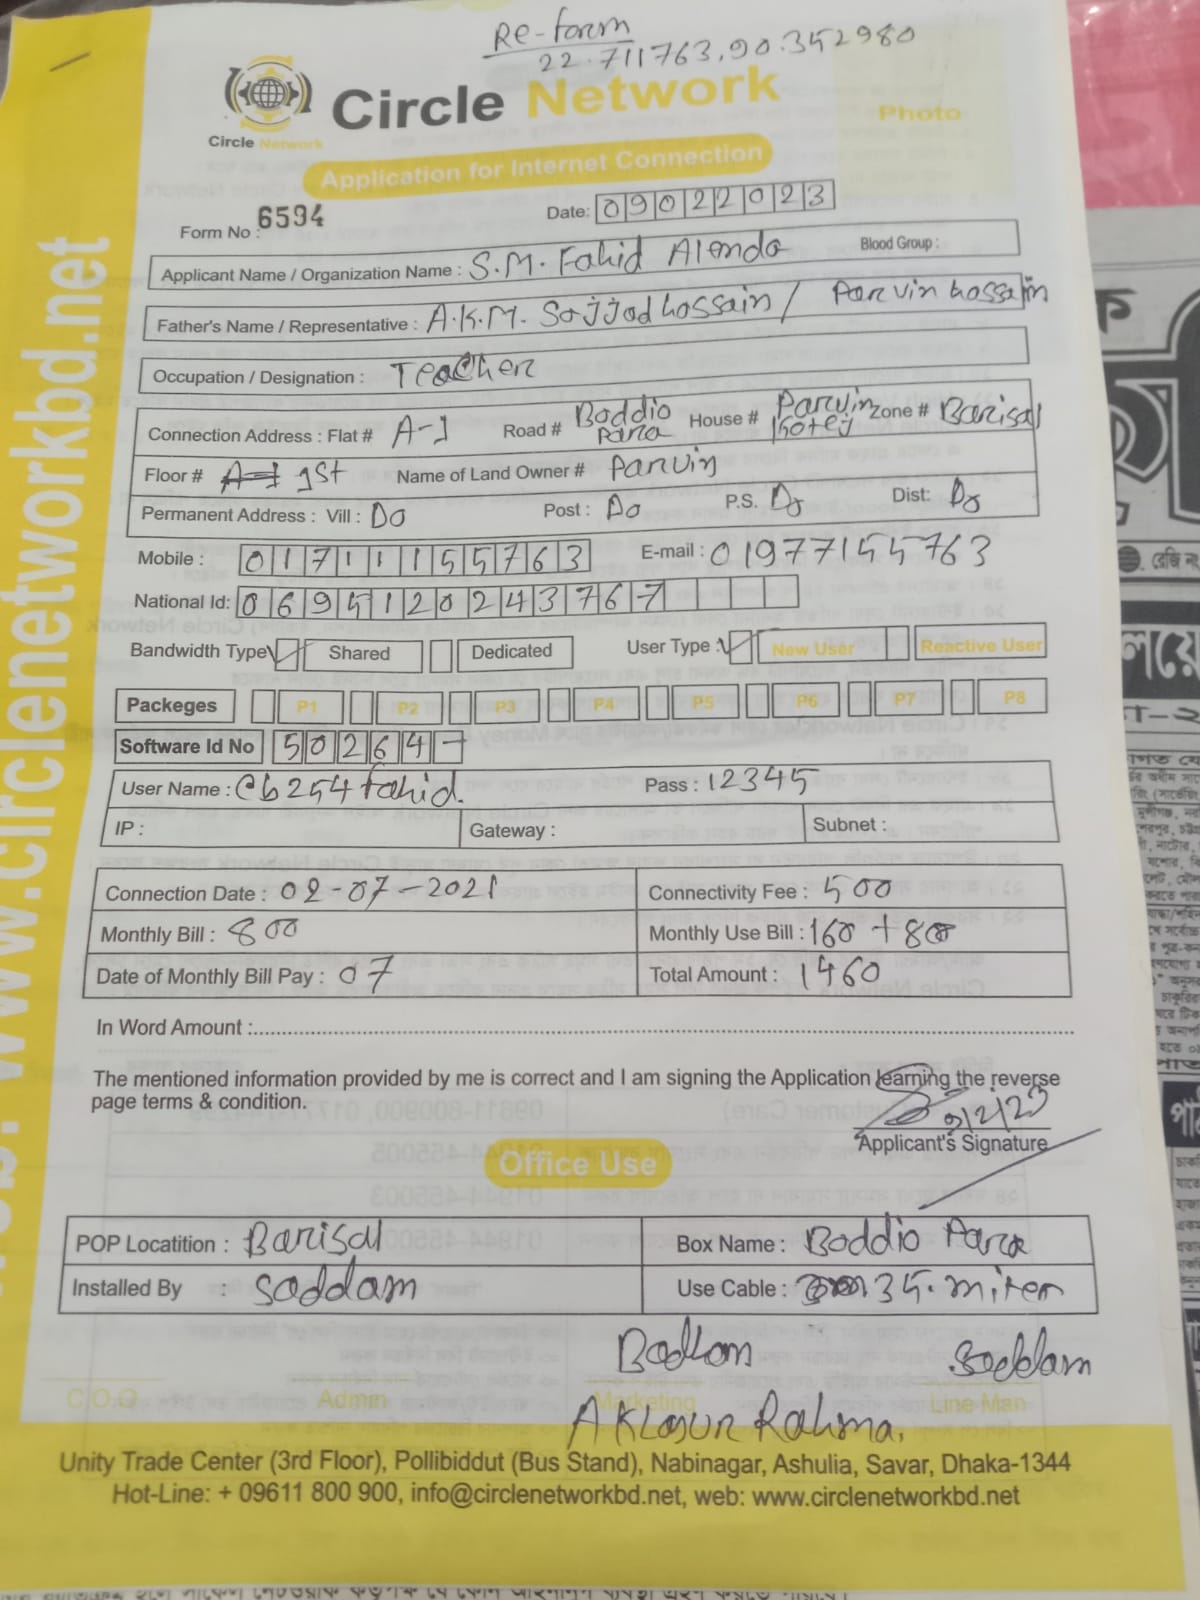 Re-form
22.711763,90.352980
Circle Network
Circle Network
Photo
Application for Internet Connection
Form No : 6594
Date: 09022023
Applicant Name / Organization Name : S.M. Fahid Alenda Blood Group :
Father's Name / Representative : A.K.M. Sajjad hossain / Parvin hossain
Occupation / Designation : Teacher
Connection Address : Flat # A-1 Road # Boddio Para House # Parvin Zone # Barisal
Floor # 1st Name of Land Owner # Parvin
Permanent Address : Vill : Do Post : Do P.S. Do Dist: Do
Mobile : 01711155763 E-mail : 01977155763
National Id: 0695120243767
Bandwidth Type Shared Dedicated User Type : New User Reactive User
Packeges P1 P2 P3 P4 P5 P6 P7 P8
Software Id No 50264-
User Name : cb254fahid. Pass : 12345
IP : Gateway : Subnet :
Connection Date : 02-07-2021 Connectivity Fee : 500
Monthly Bill : 800 Monthly Use Bill : 160 + 800
Date of Monthly Bill Pay : 07 Total Amount : 1460
In Word Amount :
The mentioned information provided by me is correct and I am signing the Application learning the reverse
page terms & condition.
9/2/23
Applicant's Signature
Office Use
POP Locatition : Barisal Box Name : Boddio Para
Installed By : Saddam Use Cable : 35.miter
Saddam
C.O.O Admin Marketing Line Man
Unity Trade Center (3rd Floor), Pollibiddut (Bus Stand), Nabinagar, Ashulia, Savar, Dhaka-1344
Hot-Line: + 09611 800 900, info@circlenetworkbd.net, web: www.circlenetworkbd.net
www.circlenetworkbd.net